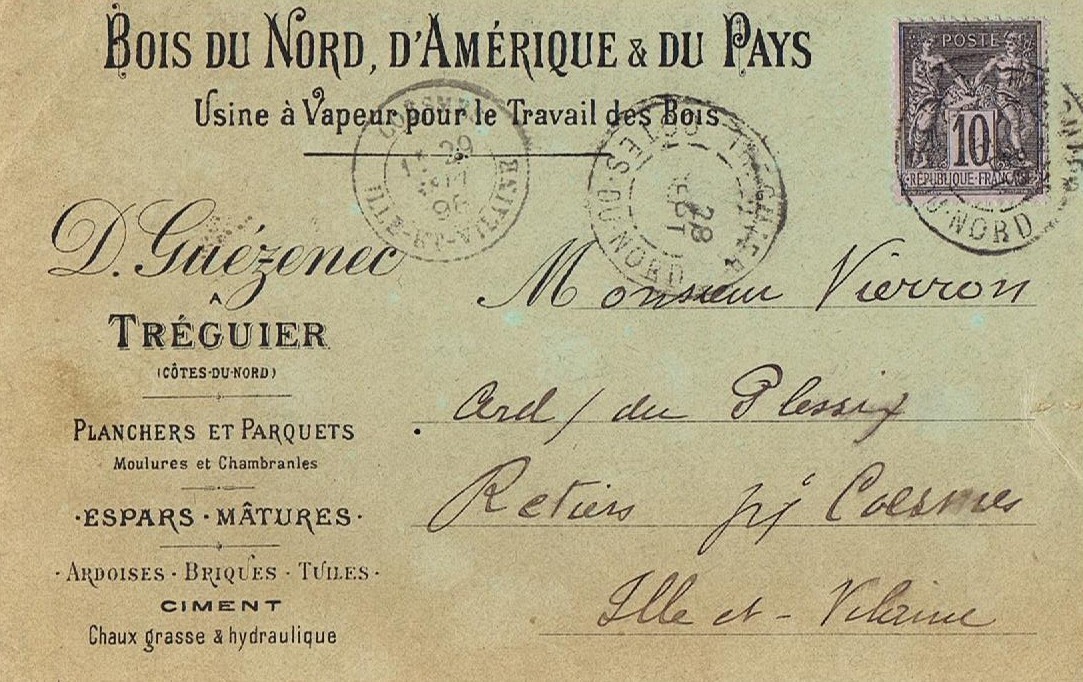 BOIS DU NORD, D'AMÉRIQUE & DU PAYS
Usine à Vapeur pour le Travail des Bois
POSTE
10
RÉPUBLIQUE FRANÇAISE
COESMES
29
96
ILLE-ET-VILAINE
TRÉGUIER
28
CÔTES-DU-NORD
U-NORD
D. Guézenec
À
TRÉGUIER
(CÔTES-DU-NORD)
PLANCHERS ET PARQUETS
Moulures et Chambranles
·ESPARS · MÂTURES·
·ARDOISES · BRIQUES · TUILES·
CIMENT
Chaux grasse & hydraulique
Monsieur Vierron
du Plessix
Retiers Coesmes
Ille et - Vilaine